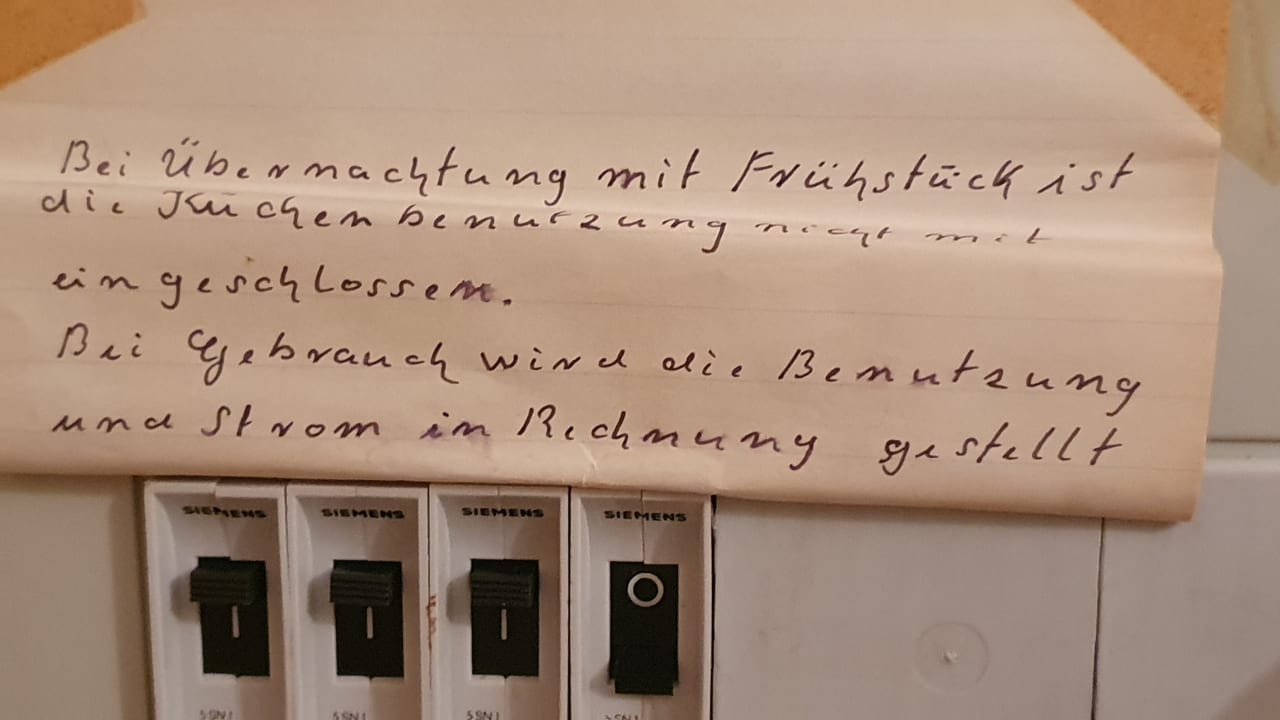 Bei Übernachtung mit Frühstück ist
die Küchenbenutzung nicht mit
eingeschlossen.
Bei Gebrauch wird die Benutzung
und Strom in Rechnung gestellt
SIEMENS SIEMENS SIEMENS SIEMENS
5SN1 5SN1 5SN1 5SN1